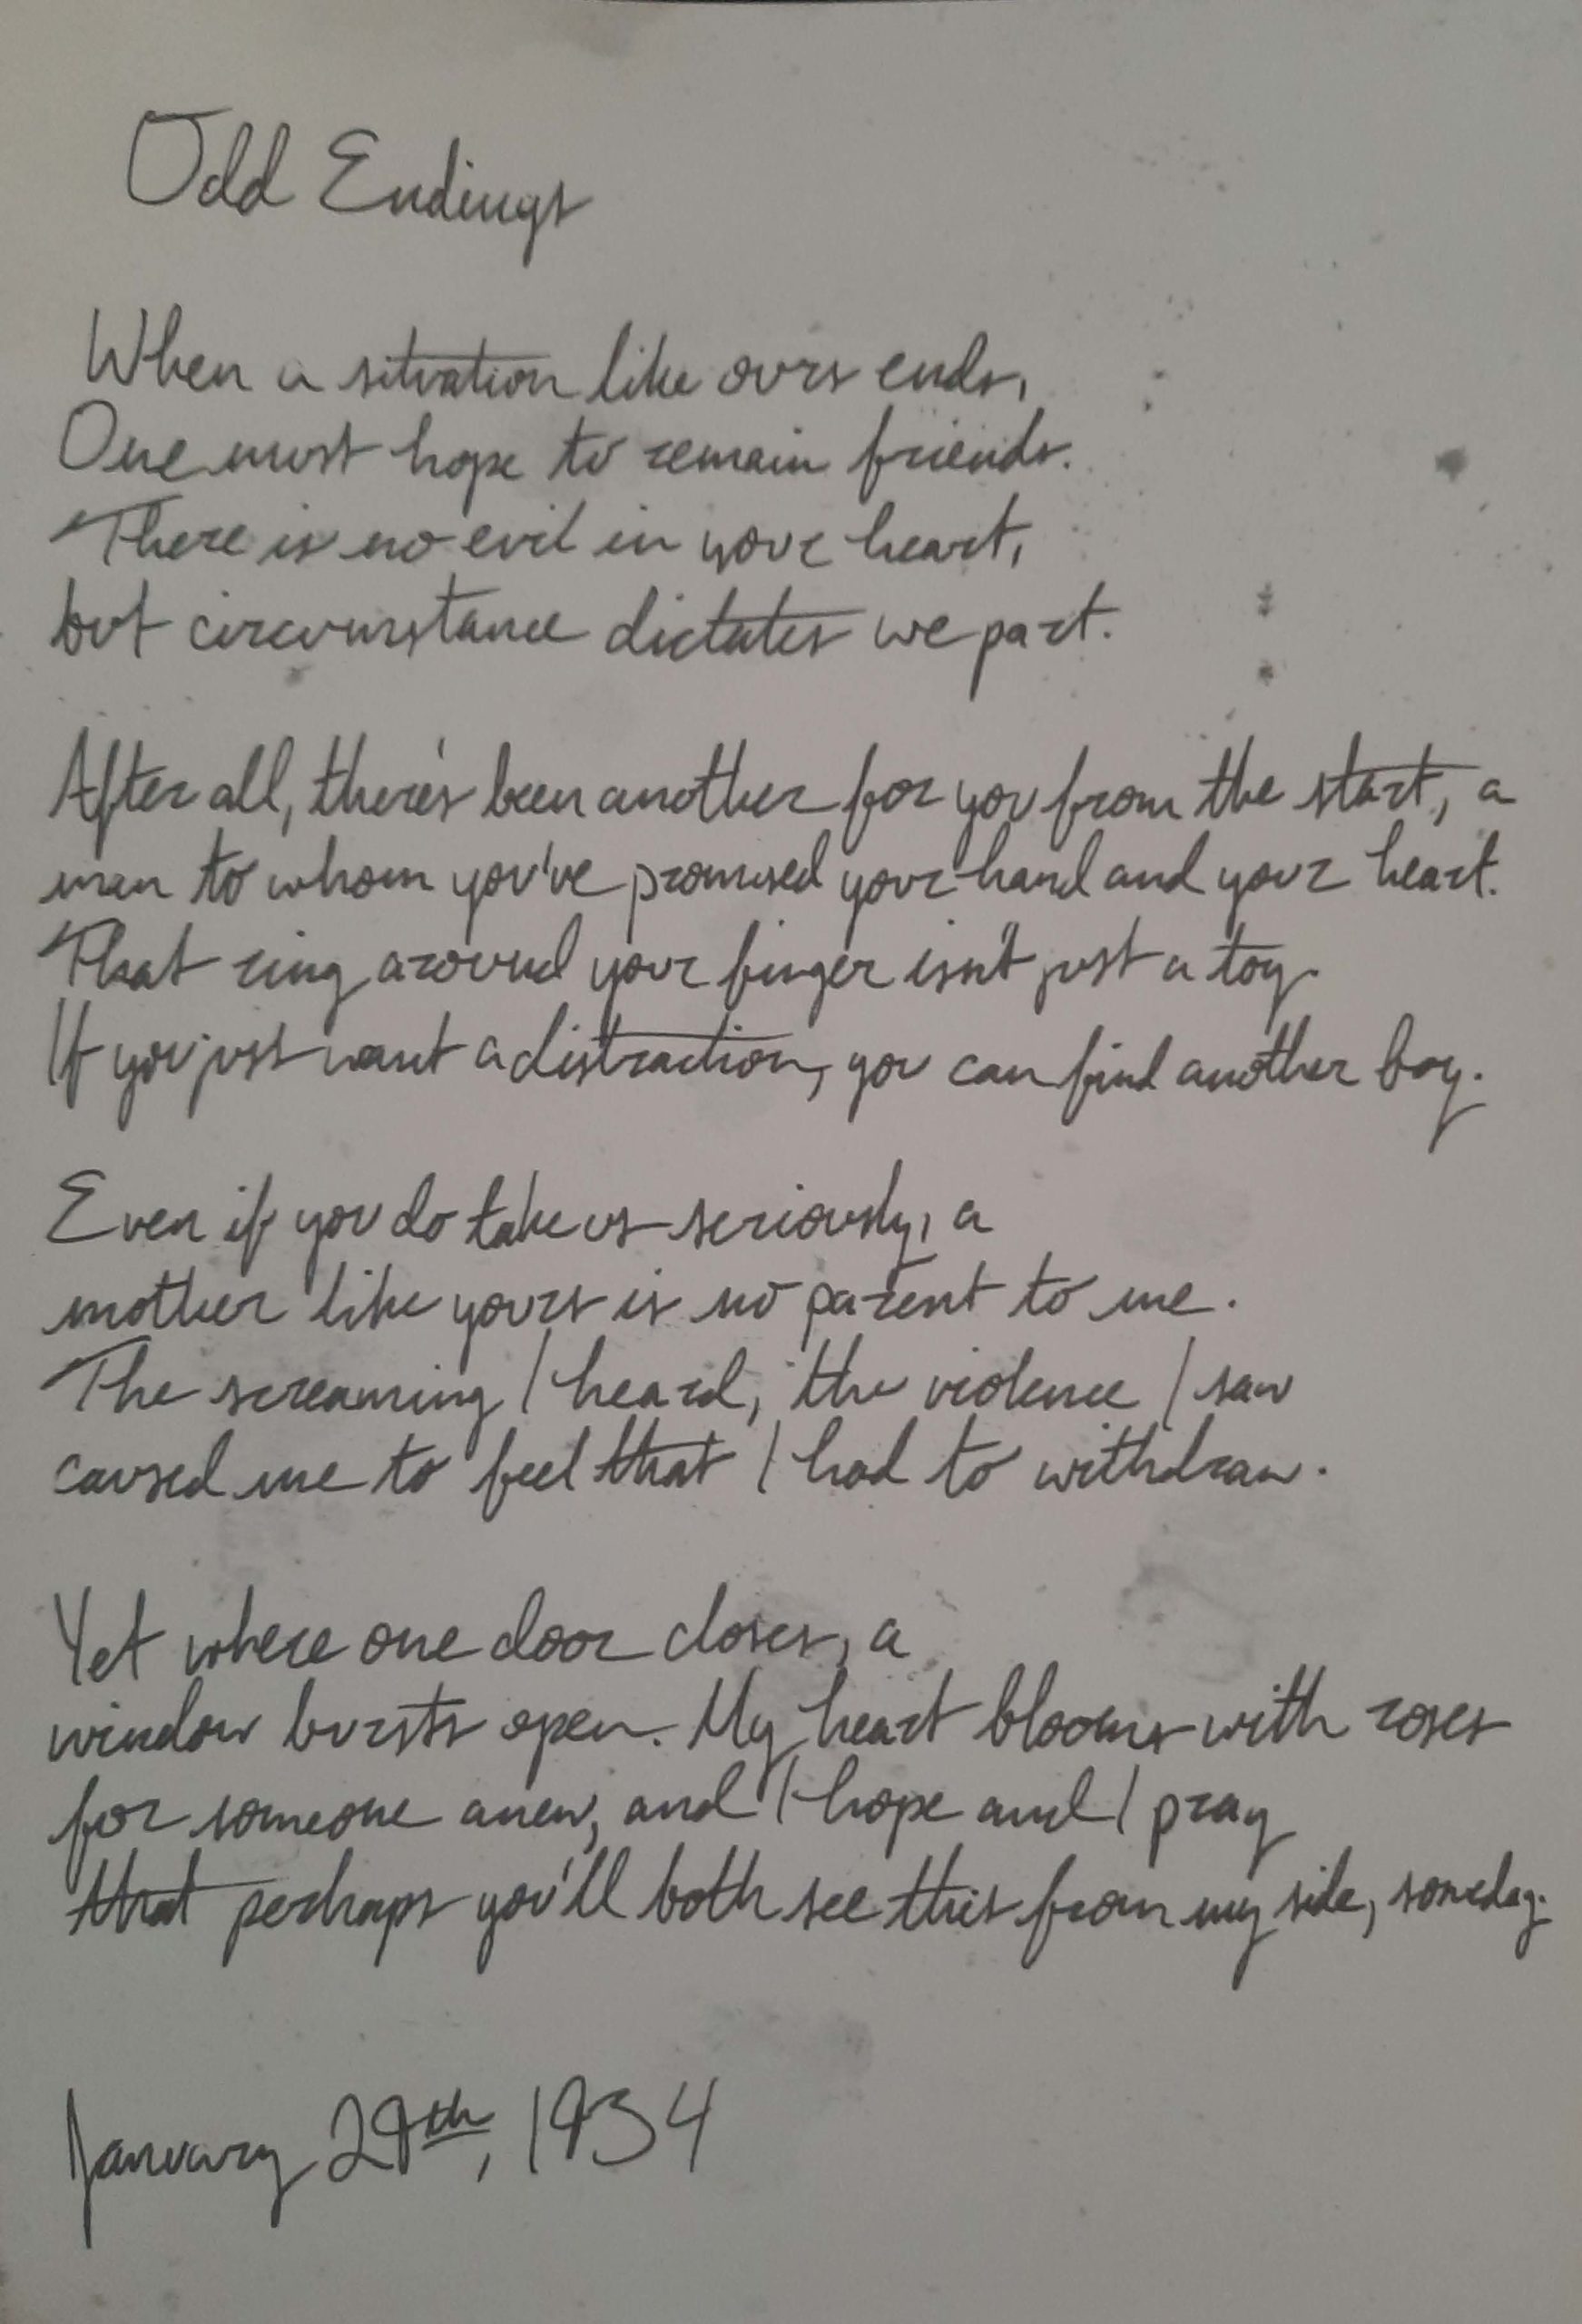 Odd Endings
When a situation like ours ends,
One must hope to remain friends.
There is no evil in your heart,
but circumstance dictates we part.
After all, there's been another for you from the start, a
man to whom you've promised your hand and your heart.
That ring around your finger isn't just a toy.
If you just want a distraction, you can find another boy.
Even if you do take us seriously, a
mother like yours is no parent to me.
The screaming I heard, the violence I saw
caused me to feel that I had to withdraw.
Yet where one door closes, a
window bursts open. My heart blooms with roses
for someone anew, and I hope and I pray
that perhaps you'll both see this from my side, someday.
January 29th, 1934